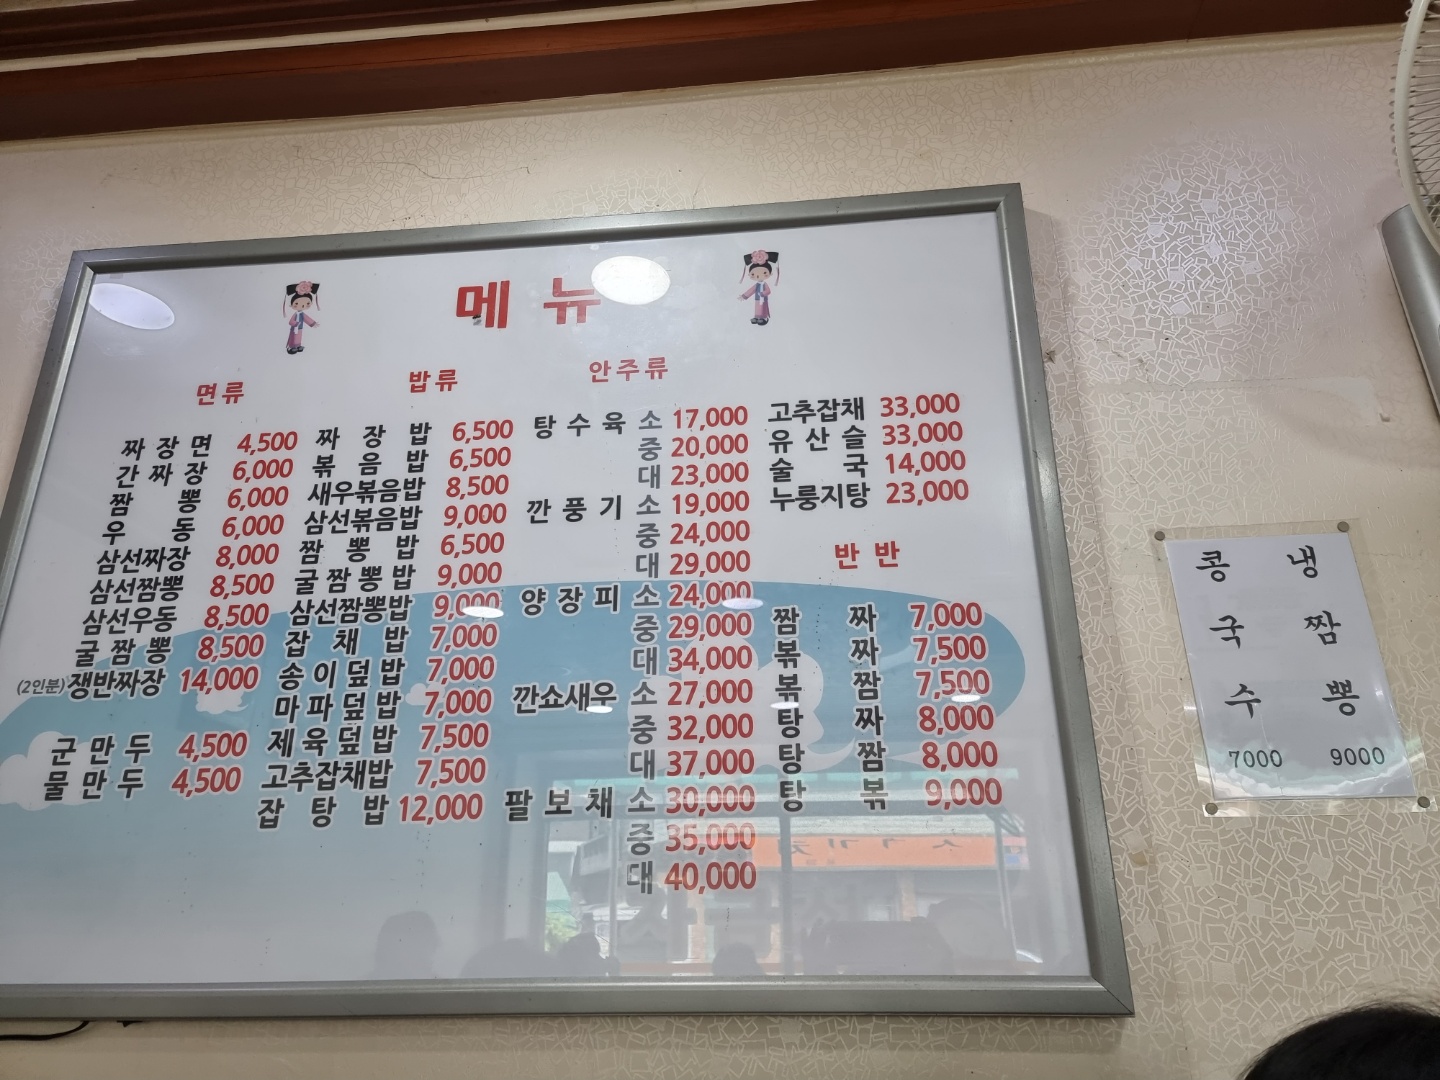 메뉴
면류
짜장면 4,500
간짜장 6,000
짬뽕 6,000
우동 6,000
삼선짜장 8,000
삼선짬뽕 8,500
삼선우동 8,500
굴짬뽕 8,500
(2인분)쟁반짜장 14,000
군만두 4,500
물만두 4,500
밥류
짜장밥 6,500
볶음밥 6,500
새우볶음밥 8,500
삼선볶음밥 9,000
짬뽕밥 6,500
굴짬뽕밥 9,000
삼선짬뽕밥 9,000
잡채밥 7,000
송이덮밥 7,000
마파덮밥 7,000
제육덮밥 7,500
고추잡채밥 7,500
잡탕밥 12,000
안주류
탕수육 소 17,000
중 20,000
대 23,000
깐풍기 소 19,000
중 24,000
대 29,000
양장피 소 24,000
중 29,000
대 34,000
깐쇼새우 소 27,000
중 32,000
대 37,000
팔보채 소 30,000
중 35,000
대 40,000
고추잡채 33,000
유산슬 33,000
술국 14,000
누룽지탕 23,000
반반
짬짜 7,000
볶짜 7,500
볶짬 7,500
탕짜 8,000
탕짬 8,000
탕볶 9,000
콩국수 7000
냉짬뽕 9000